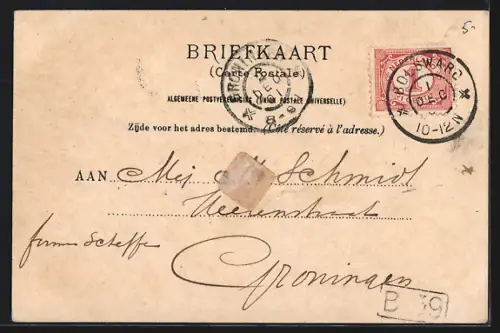 5.-
BRIEFKAART
(Carte Postale.)
ALGEMEENE POSTVEREENIGING (UNION POSTALE UNIVERSELLE)
Zijde voor het adres bestemd. (Côté réservé à l'adresse.)
BOLSWARD
DEC
10-12N
DEC
8-9
AAN Mej Schmidt
Heerenstraat
firma Scheffer
Groningen
B 39